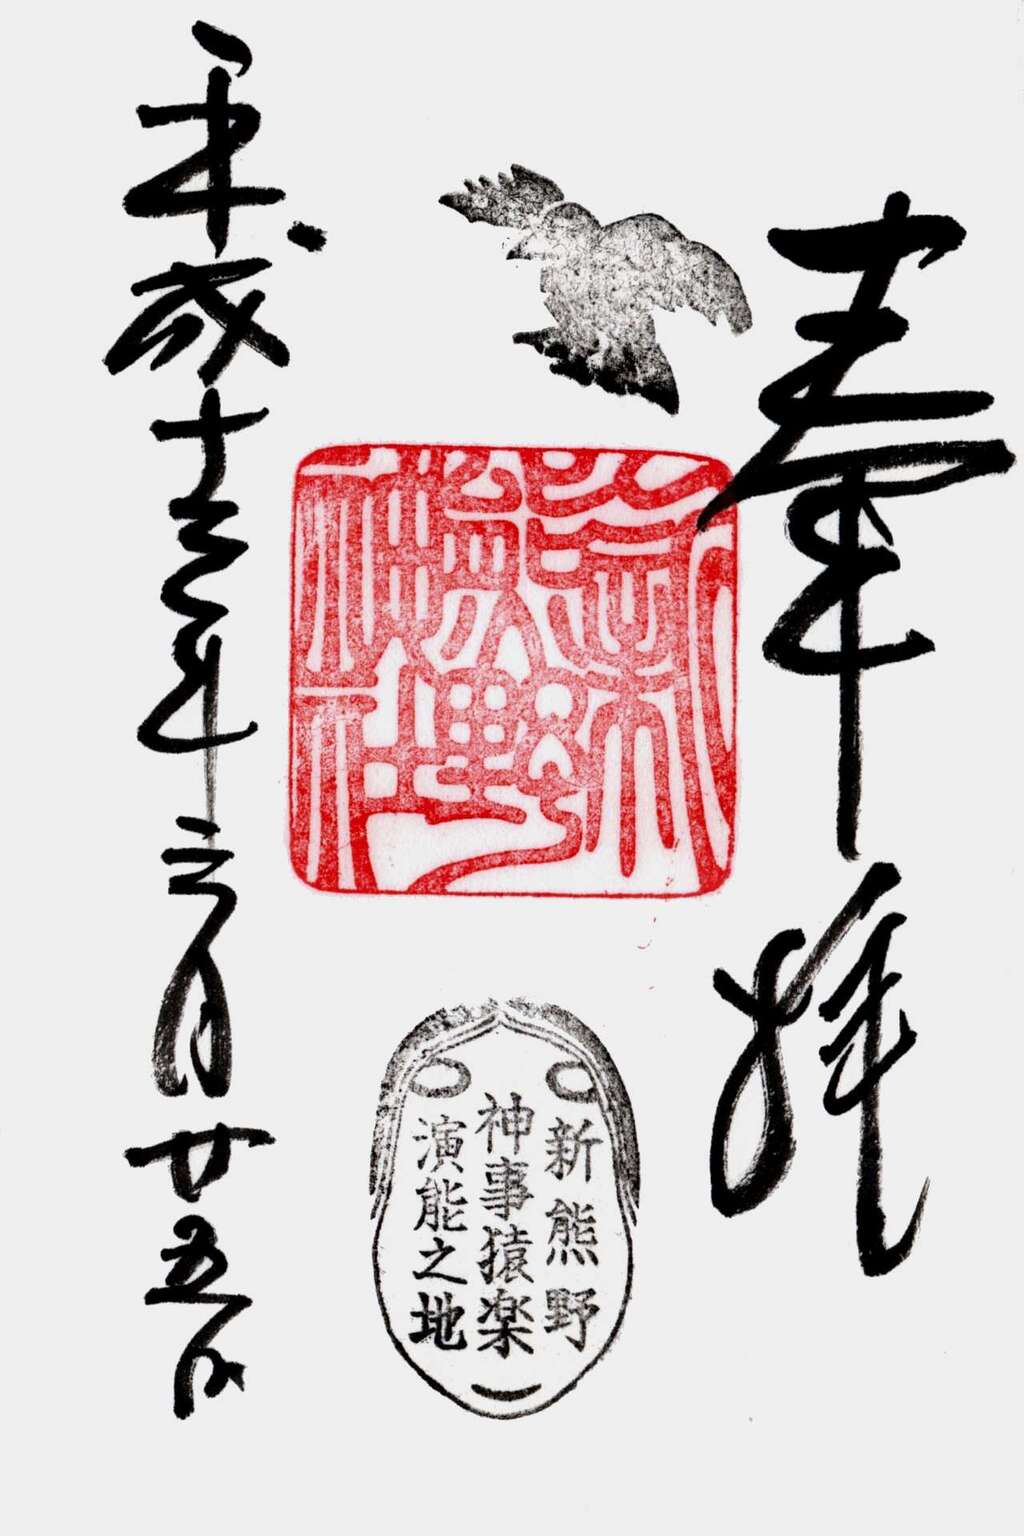 奉拝
新熊野
神事猿楽
演能之地
平成十三年三月廿五日